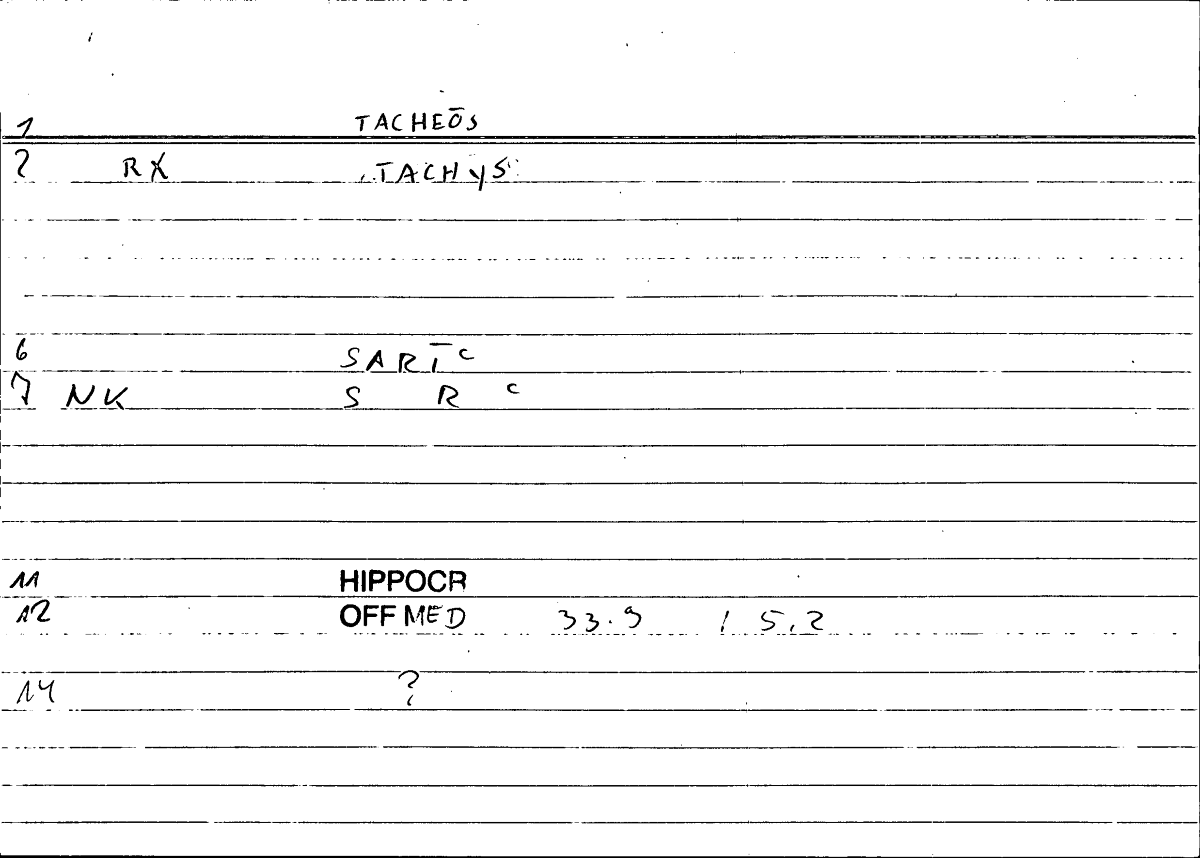 1 TACHEŌS
2 RX TACHYS
6 SARĪ c
7 NK S R c
11 HIPPOCR
12 OFF MED 33.9 / 5,2
14 ?